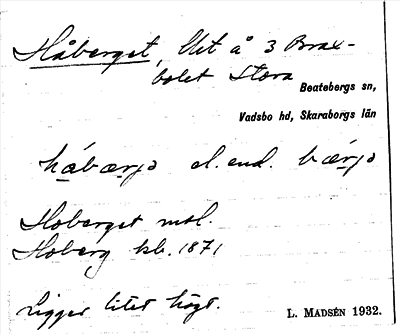 Håberget, Utt å 3 Brax-
bolet Stora
Beatebergs sn,
Vadsbo hd, Skaraborgs län
hábærjə el. end. bærjə
Hoberget msl.
Hoberg kb. 1871
Ligger litet högt.
L. MADSÉN 1932.